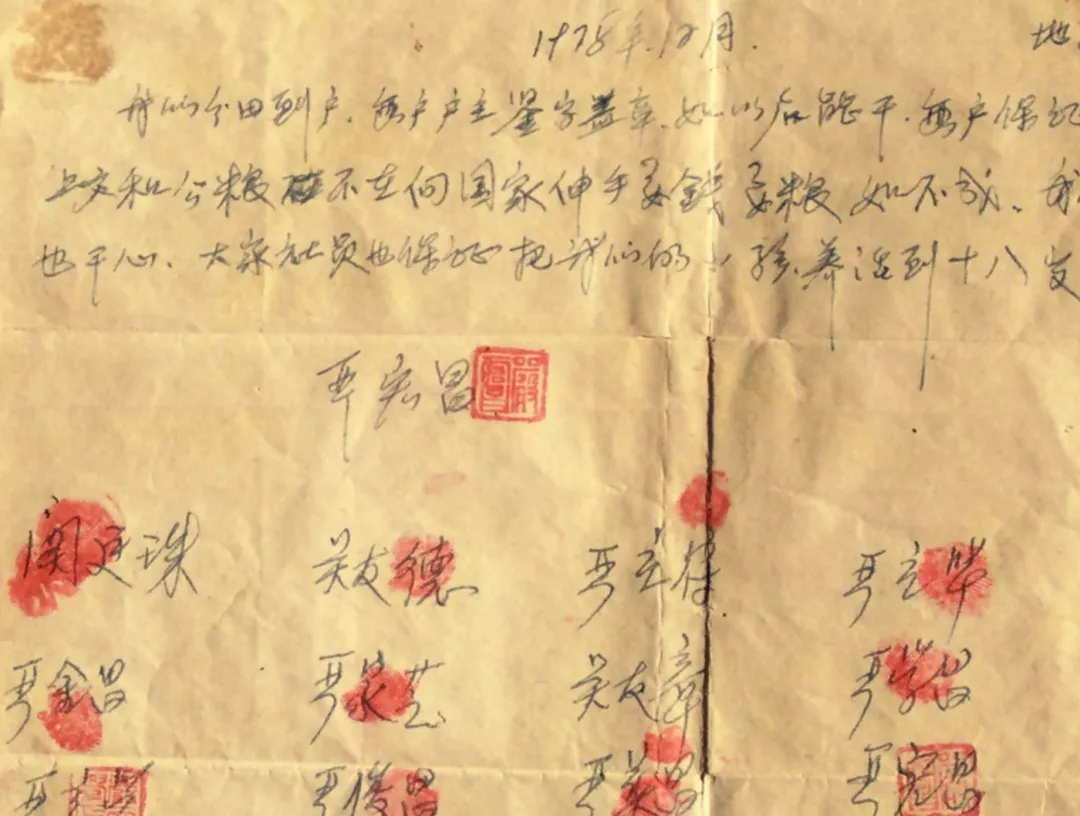 1978年.12月. 地
我们分田到户.每户户主鉴字盖章.如以后能干.每户保证
上交和公粮 不在向国家伸手要錢要粮 如不成.我
也干心.大家社员也保证把我们的小孩养活到十八岁
严宏昌
关友德 严立符 严立华
严金昌 严家芝 关友章 严学昌
严俊昌 严美昌 严宏昌